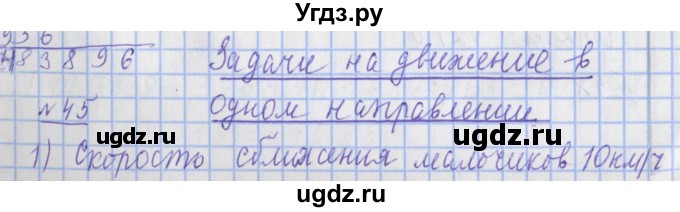 Угдз.ру
936
483896 Задачи на движение в
№45 одном направлении
udgz.ru udgz.ru
1) Скорость сближения мальчиков 10км/ч
udgz.ru udgz.ru